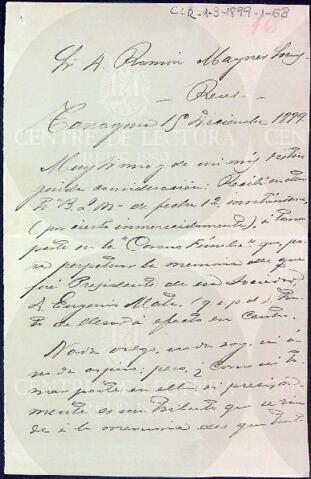 CLR-1-3-1899-1-68
16
Sr. D. Ramón Mayner Socias
Reus.
Tarragona 15 Diciembre 1899
Muy Sr mio y de mi más distin
guida consideración: Recibí
B. L. M. de fecha 12, invitandome
(por cierto inmerecidamente), á tomar
parte en la "Corona Fúnebre" que, pa
ra perpetuar la memoria del que
fué Presidente de esa Sociedad
D. Eugenio Mata (q. e. p. d.), tra
ta de llevar á efecto ese Centro.
Nada valgo, nada soy, ni á
nada aspiro: pero, ¿como no to
mar parte en ella si precisa
mente es un tributo que se rin
de á la memoria del que
CENTRE DE LECTURA
REUS 1859